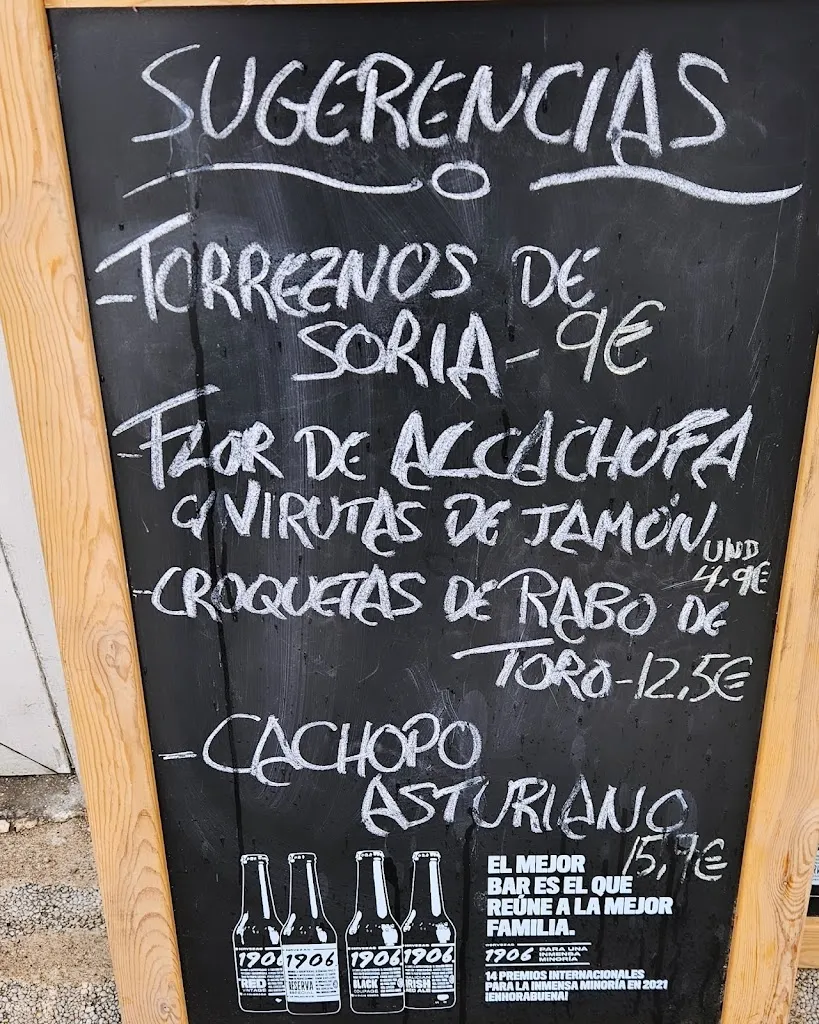 SUGERENCIAS
-TORREZNOS DE
SORIA - 9€
-FLOR DE ALCACHOFA
C/ VIRUTAS DE JAMÓN
UND
4,9€
-CROQUETAS DE RABO DE
TORO - 12,5€
- CACHOPO
ASTURIANO
15,9€
EL MEJOR
BAR ES EL QUE
REÚNE A LA MEJOR
FAMILIA.
CERVEZAS
1906
PARA UNA
INMENSA
MINORÍA
14 PREMIOS INTERNACIONALES
PARA LA INMENSA MINORÍA EN 2021
¡ENHORABUENA!
1906
RED
VINTAGE
1906
RESERVA
ESPECIAL
1906
BLACK
COUPAGE
1906
IRISH
RED ALE